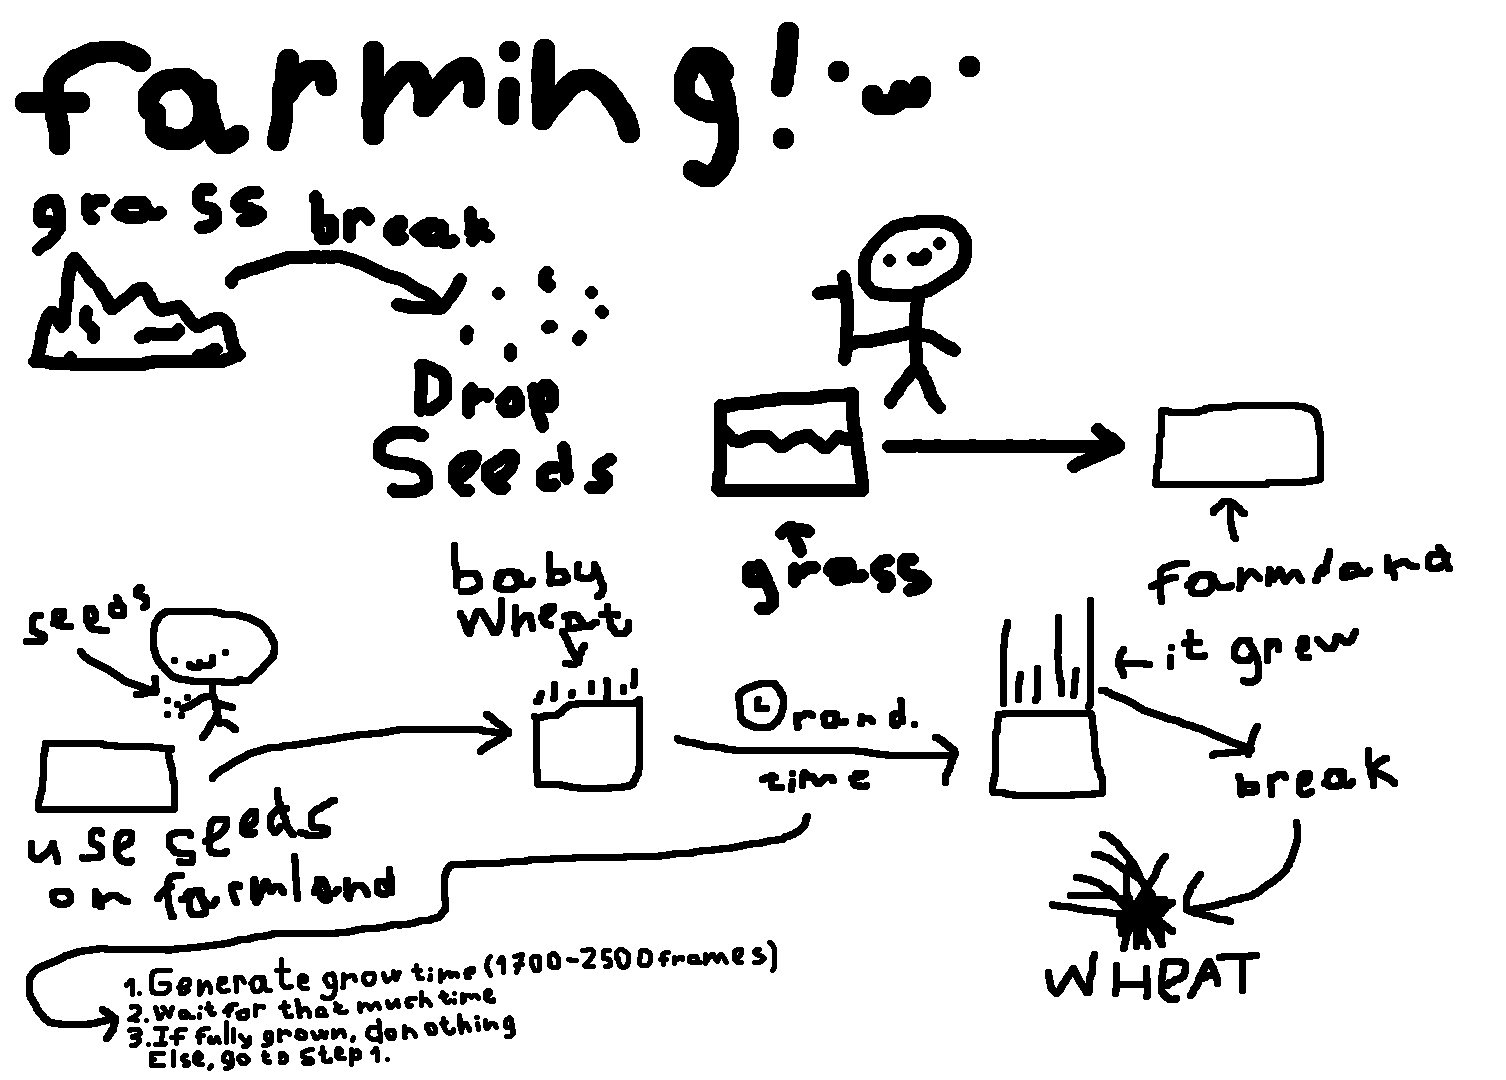 farming!
grass
break
Drop
Seeds
grass
farmland
seeds
use seeds
on farmland
baby
wheat
rand.
time
it grew
break
WHEAT
1. Generate grow time (1700-2500 frames)
2. Wait for that much time
3. If fully grown, do nothing
Else, go to step 1.